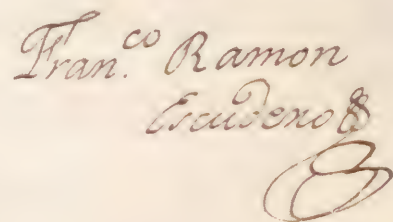 Fran.co Ramon
Escudero